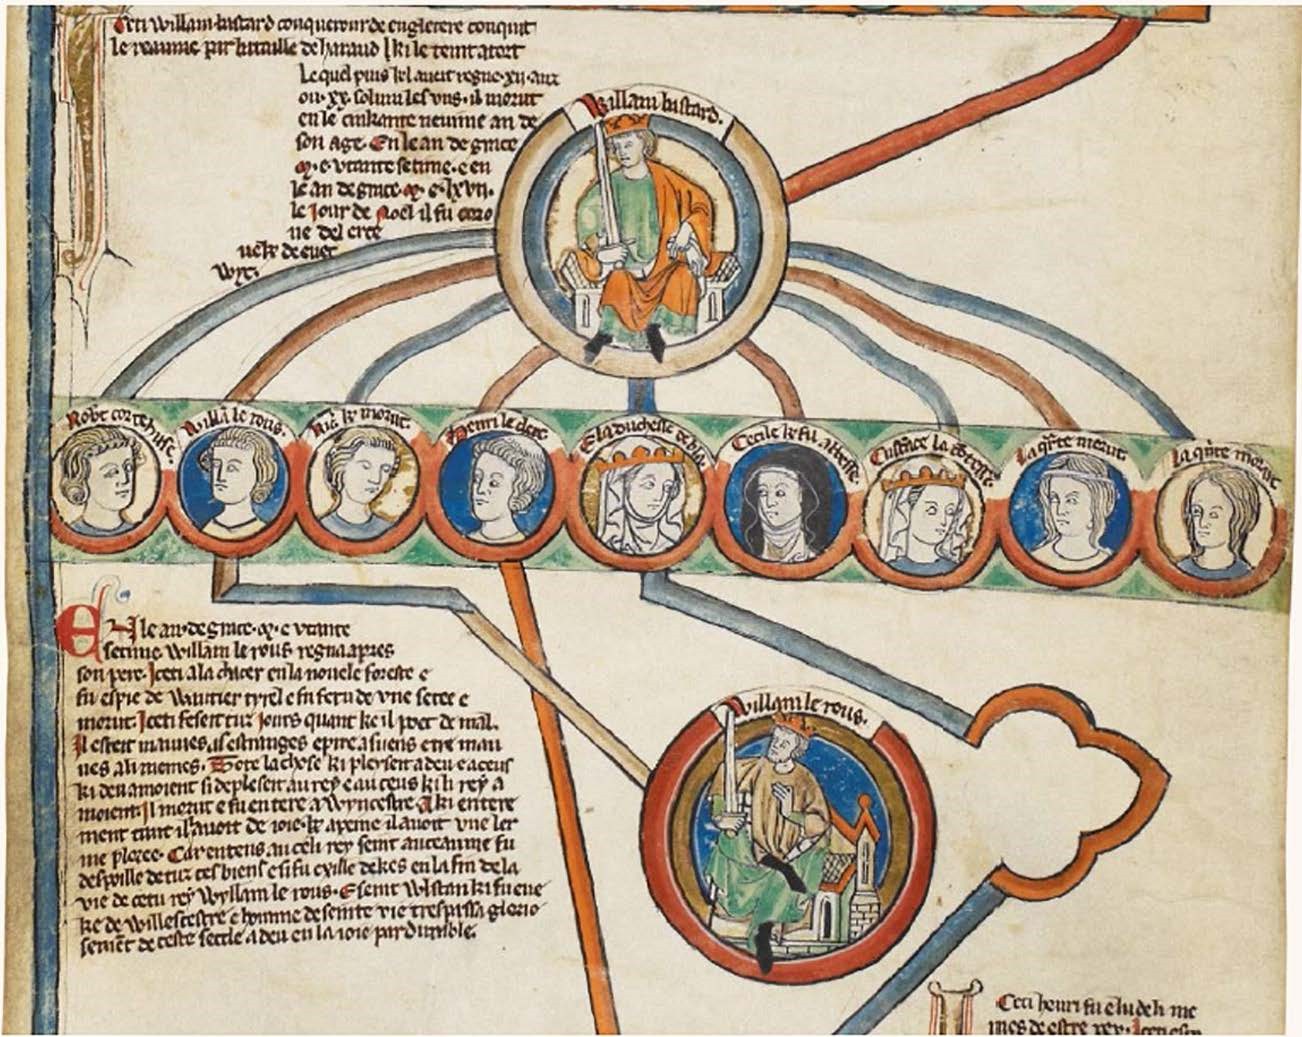 Ceti Willam bastard conquerour de engletere conquit
le reaume par bataille de haraud ki le teint a tort
Le quel puis kel aueit regne xii aunz
ou xx solum les uns il morut
en le cinkante neuuime an de
son age En le an de grace
M e utante setime e en
le an de grace M e lxvii
le Jour de Noel il fu coro
ne del erce
ueske de euer
wyc.
Willam bastard.
Robert cortehuse.
Willa le rous.
Ric ke morut.
Henri le clerc
Ela Duchesse de
Cecile ke fu abbesse.
Custance la
La morut
La morut
EN le an de grace M e utante
setime Willam le rous regna apres
son pere. Iceti a la chacer en la nouele foreste e
fu espie de Wautier tyrel e fu feru de une sete e
morut. Iceti fesert tuz Jours quant ke il poet de mal.
Il esteit mauues as estranges e pire a suens e tre mau
ues a li memes. Tote la chose ki plerseit a deu e a ceus
ki deu amoient si depleseit au rey e au ceus ki li rey a
moient. Il morut e fu en tere a Wyncestre. A ki entere
ment tant il auoit de ioie ke a peine il auoit une ler
me ploree. Car en tens au celi rey seint anceaume fu
despoille de tuz ces biens e si fu exille dekes en la fin de la
vie de cetu rey Wyllam le rous. E seint Wlstan ki fu eue
ke de Willecestre e homme de seinte vie trespassa glorio
sement de ceste secle a deu en la ioie pardurable.
Willam le rous.
Ceti henri fu e lu de li me
mes de estre rey.